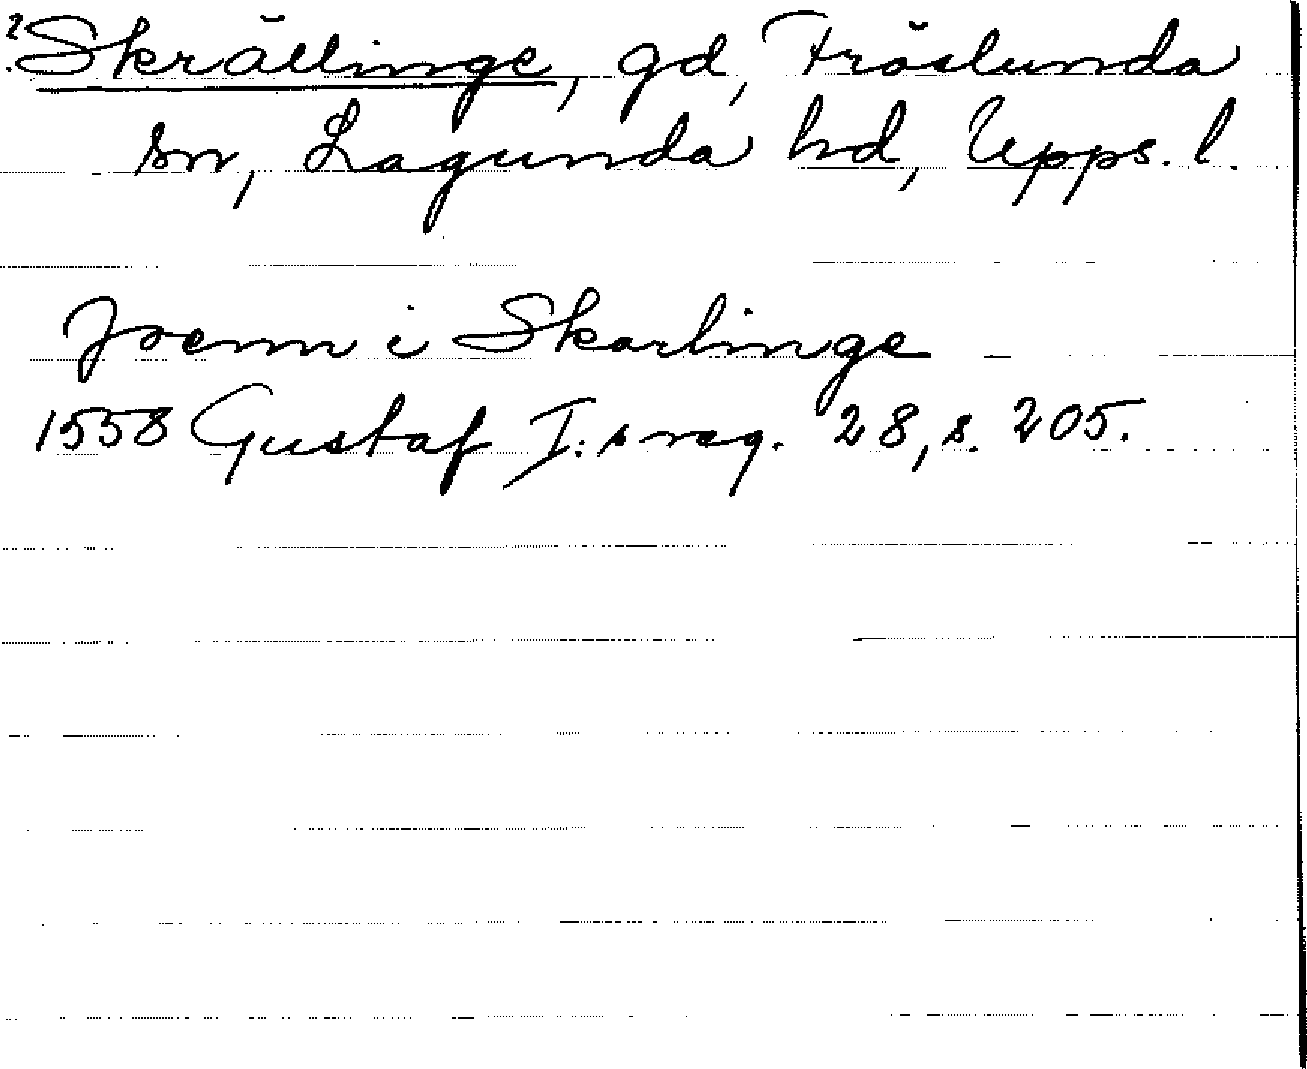 ? Skrällinge, gd, Fröslunda
sn, Lagunda hd, Upps. l.
Joenn i Skarlinge
1558 Gustaf I:s reg. 28, s. 205.